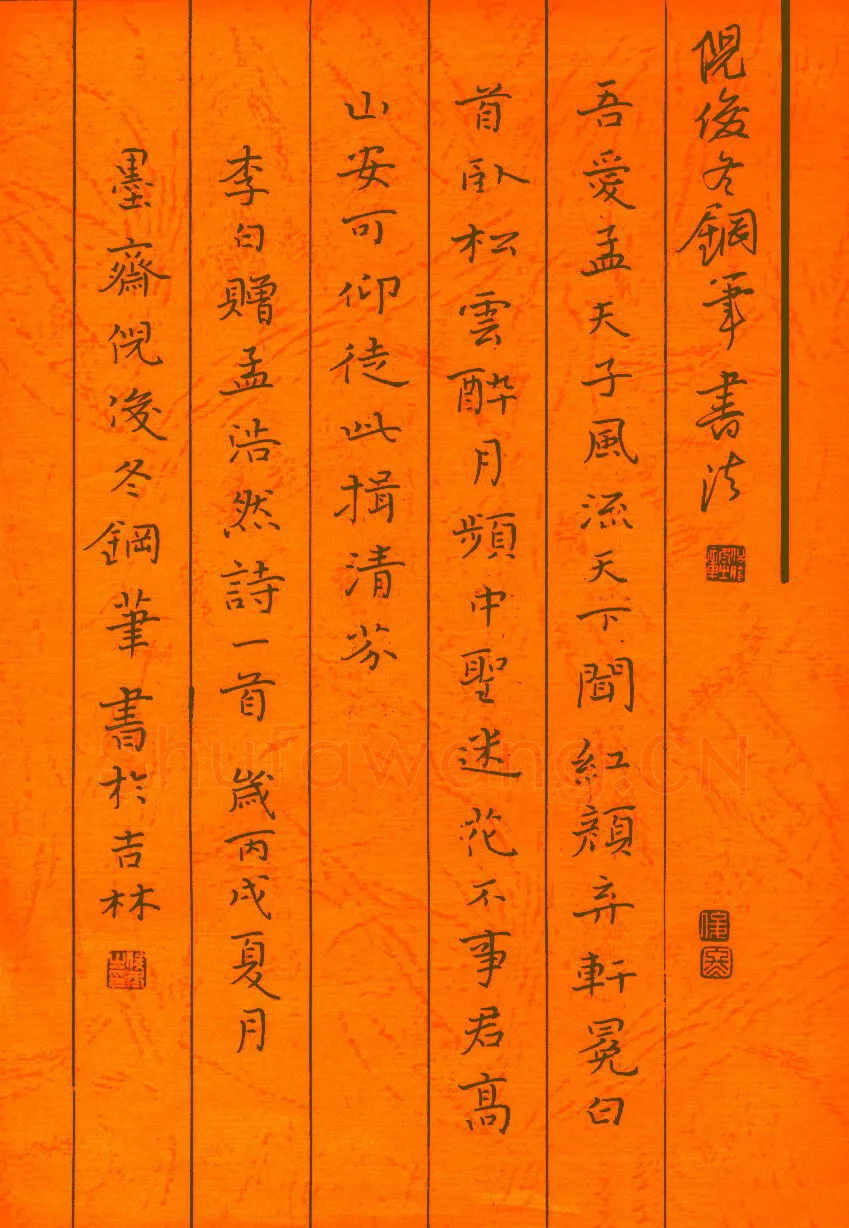 倪俊冬鋼筆書法
吾愛孟夫子風流天下聞紅顏弃軒冕白
首臥松雲醉月頻中聖迷花不事君高
山安可仰徒此揖清芬
李白贈孟浩然詩一首 歲丙戌夏月
墨齋倪俊冬鋼筆書於吉林
shufawang.CN